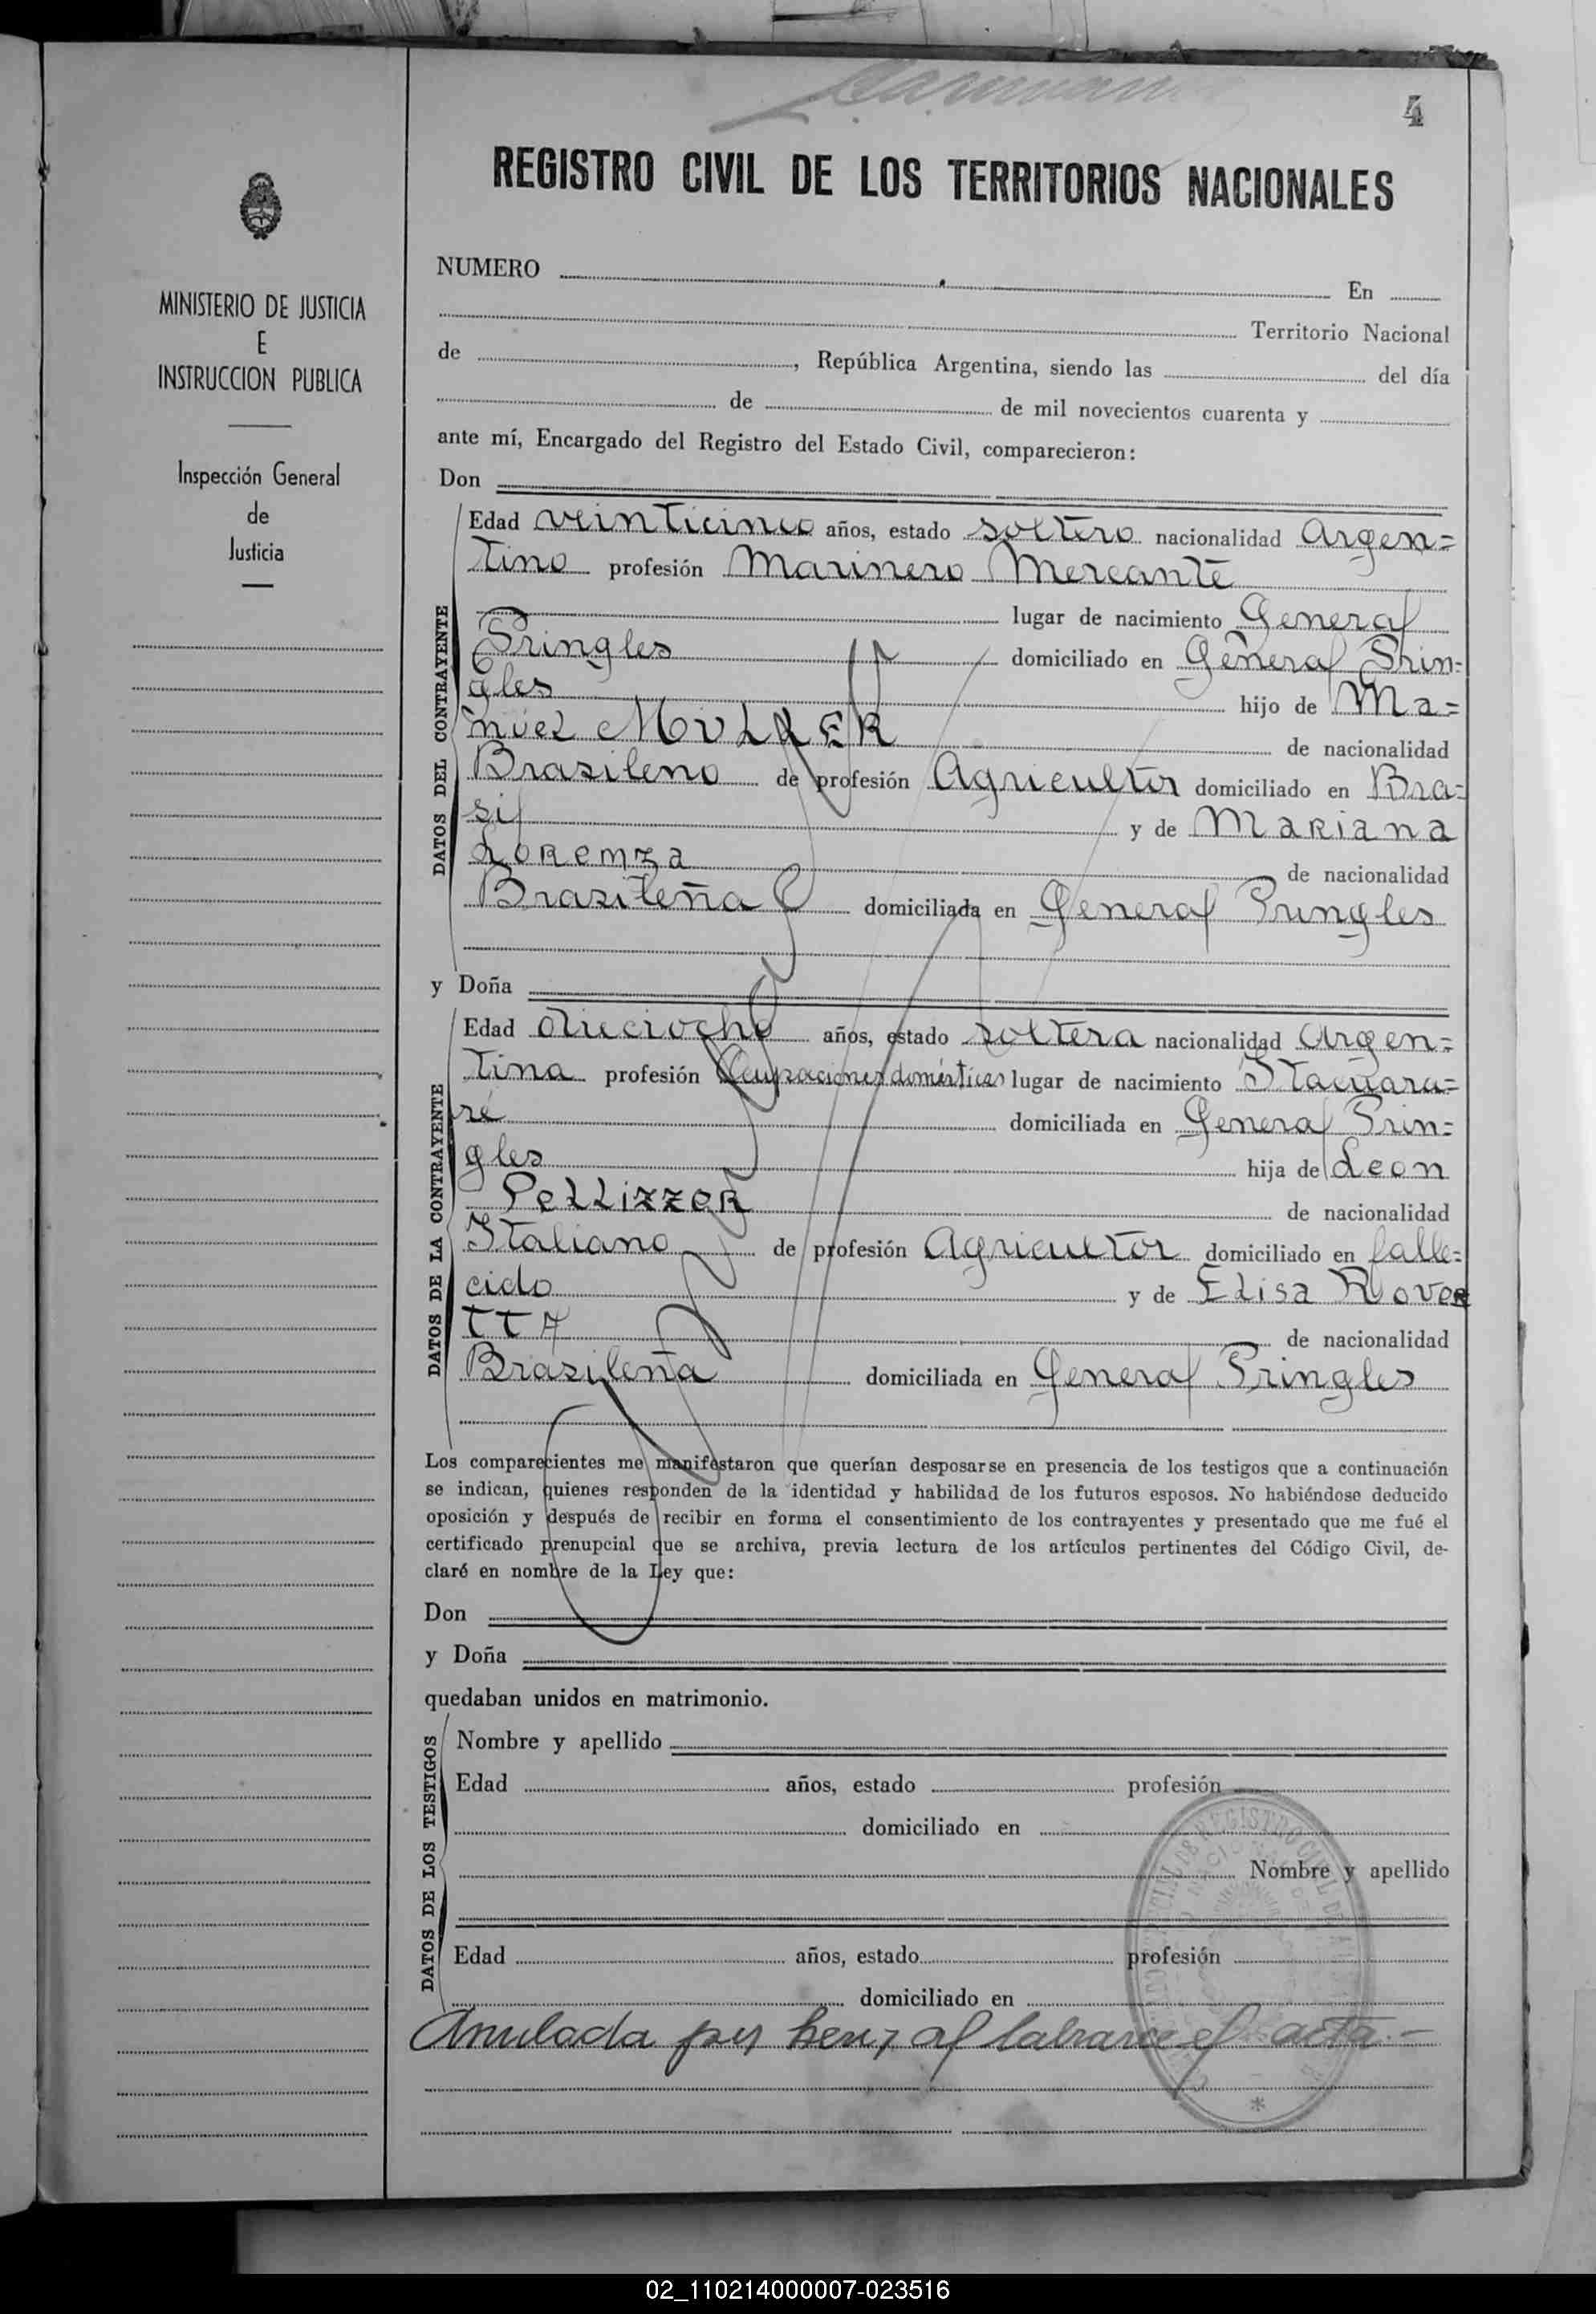 4
REGISTRO CIVIL DE LOS TERRITORIOS NACIONALES
MINISTERIO DE JUSTICIA
E
INSTRUCCION PUBLICA
Inspección General
de
Justicia
NUMERO En
Territorio Nacional
de , República Argentina, siendo las del día
de de mil novecientos cuarenta y
ante mí, Encargado del Registro del Estado Civil, comparecieron:
Don
DATOS DEL CONTRAYENTE
Edad veinticinco años, estado soltero nacionalidad Argen=
tino profesión Marinero Mercante
lugar de nacimiento General
Pringles domiciliado en General Prin=
gles hijo de Ma=
nuel MULLER de nacionalidad
Brasileno de profesión Agricultor domiciliado en Bra=
sil y de MARiana
LOREMZA de nacionalidad
Brasileña domiciliada en General Pringles
y Doña
DATOS DE LA CONTRAYENTE
Edad dieciocho años, estado soltera nacionalidad Argen=
tina profesión Ocupaciones domésticas lugar de nacimiento Itacuara=
ré domiciliada en General Prin=
gles hija de Leon
PeLLizzeR de nacionalidad
Italiano de profesión Agricultor domiciliado en falle=
cido y de ELisa Rover
TTA de nacionalidad
Brasileña domiciliada en General Pringles
Los comparecientes me manifestaron que querían desposarse en presencia de los testigos que a continuación
se indican, quienes responden de la identidad y habilidad de los futuros esposos. No habiéndose deducido
oposición y después de recibir en forma el consentimiento de los contrayentes y presentado que me fué el
certificado prenupcial que se archiva, previa lectura de los artículos pertinentes del Código Civil, de-
claré en nombre de la Ley que:
Don
y Doña
quedaban unidos en matrimonio.
DATOS DE LOS TESTIGOS
Nombre y apellido
Edad años, estado profesión
domiciliado en
Nombre y apellido
Edad años, estado profesión
domiciliado en
Anulada por al labrarse el acta.-
02_110214000007-023516